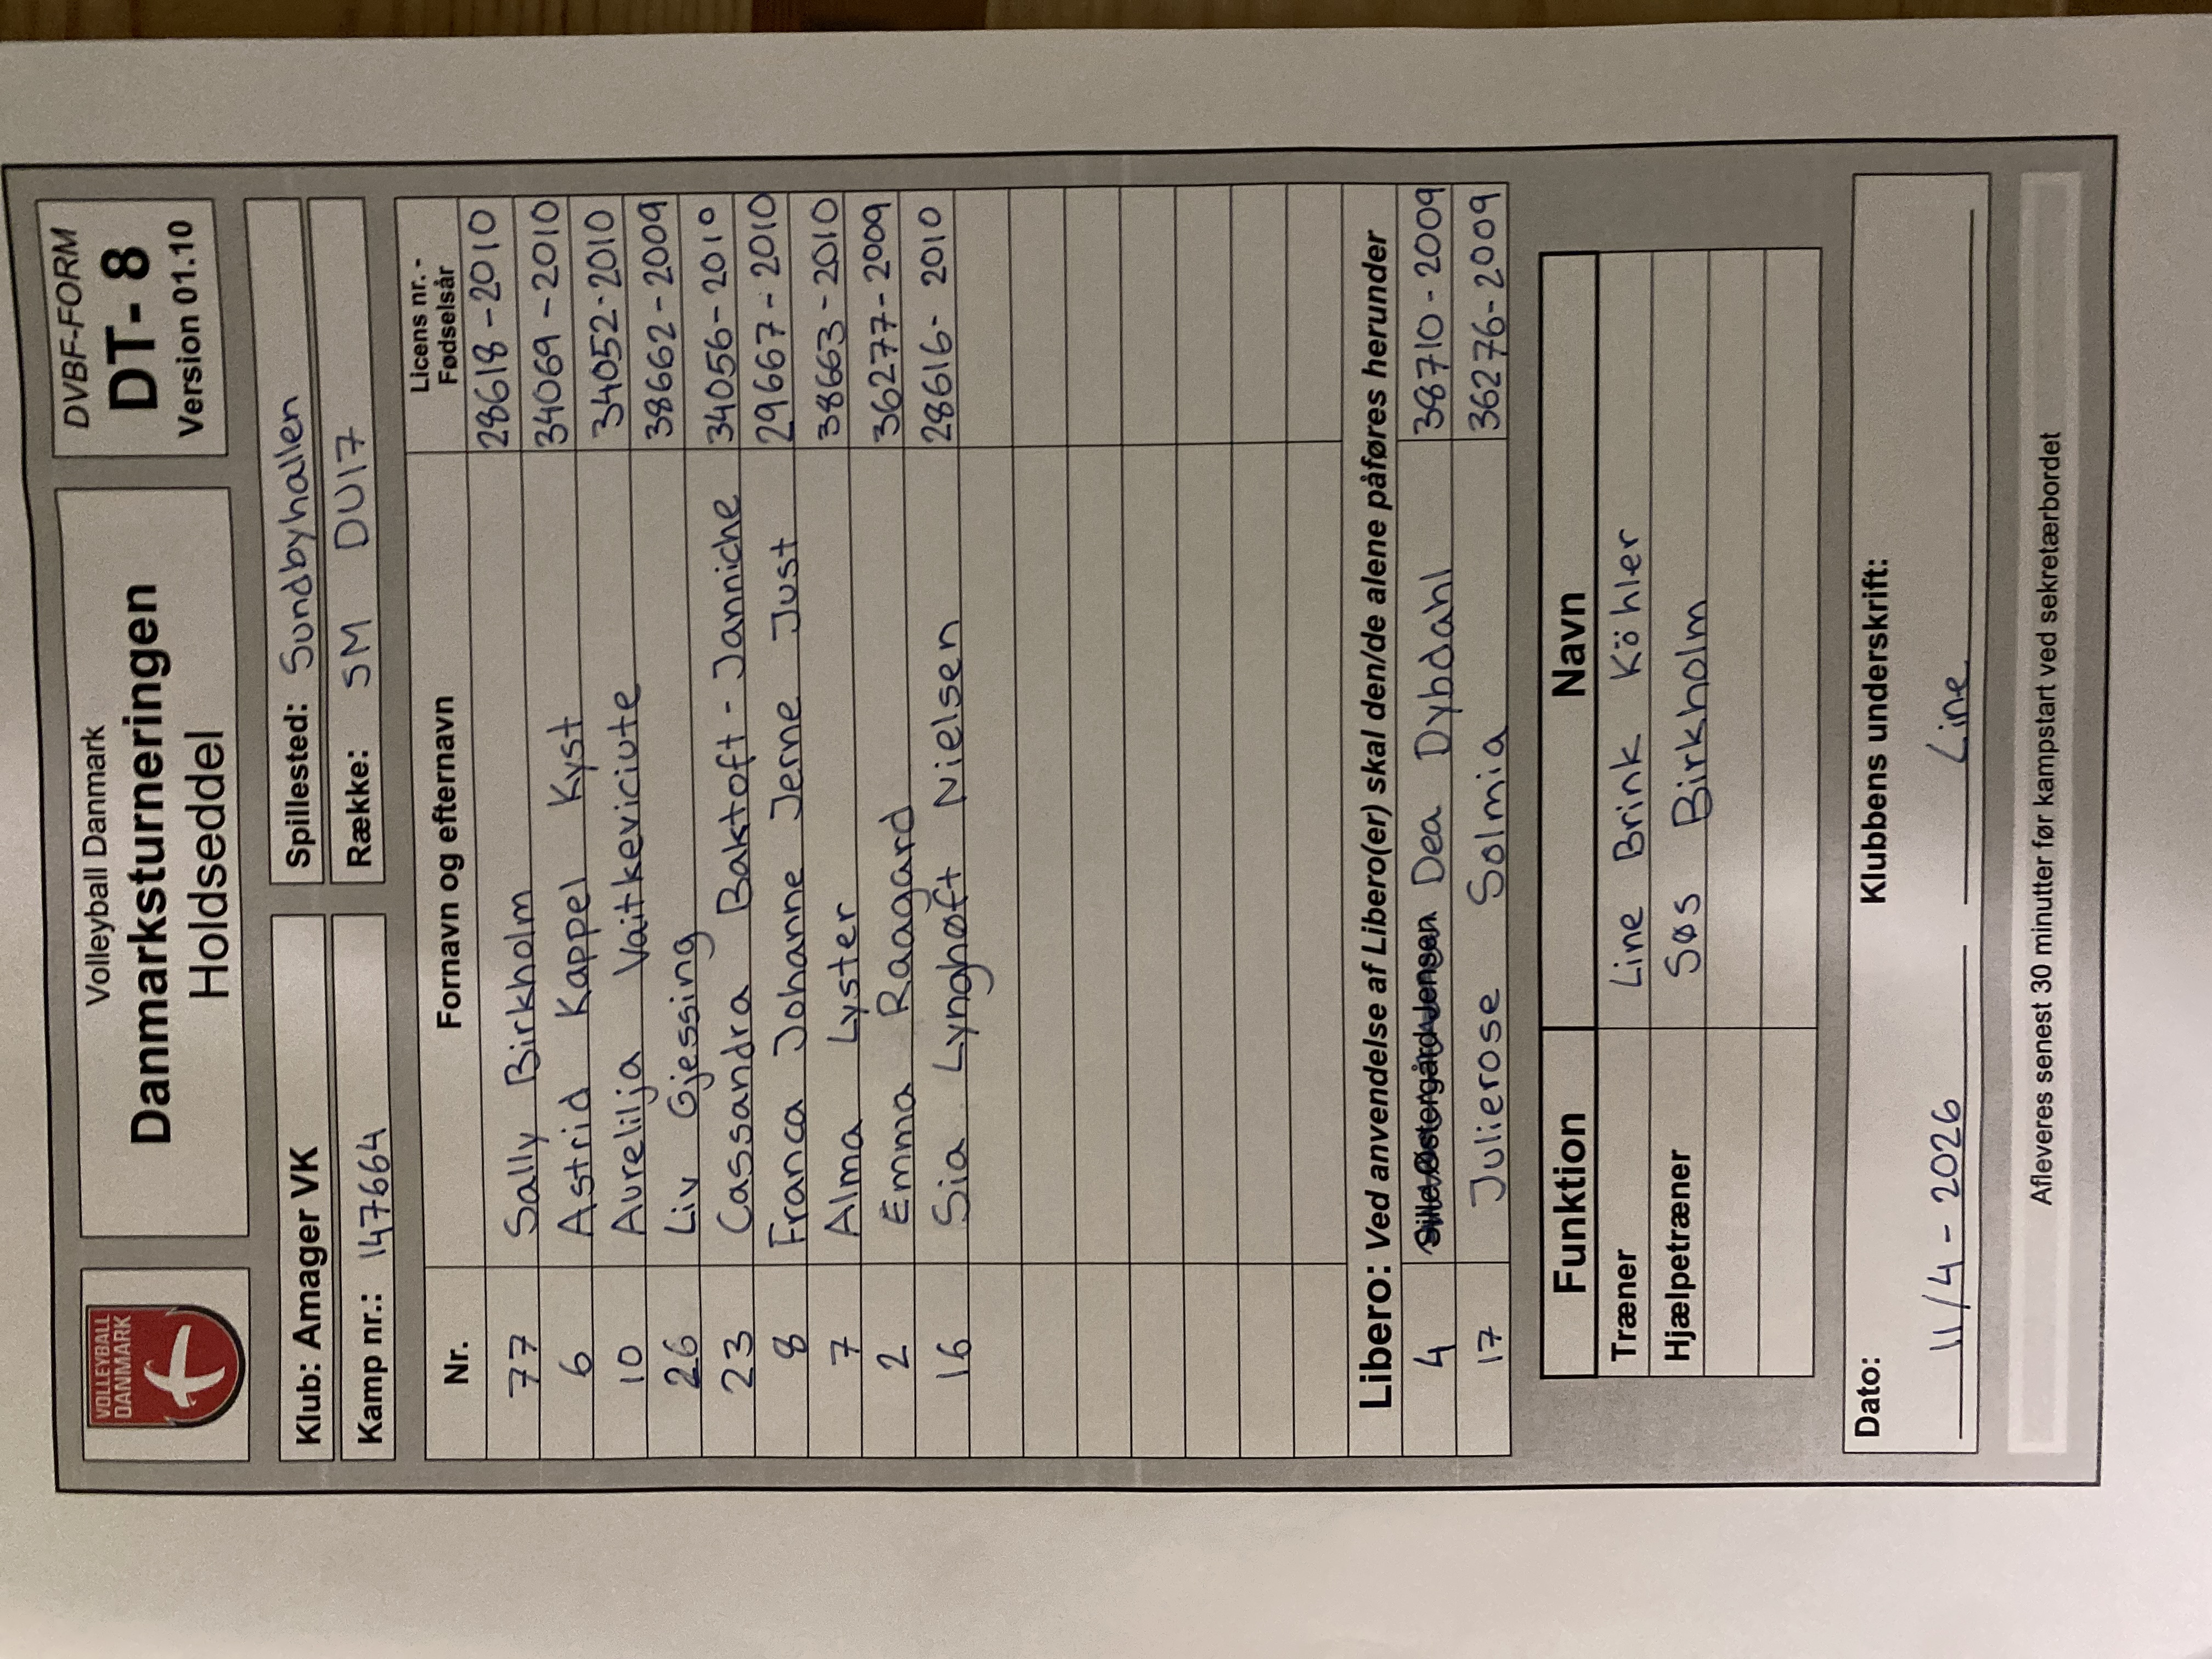 VOLLEYBALL
DANMARK
Volleyball Danmark
Danmarksturneringen
Holdseddel
DVBF-FORM
DT- 8
Version 01.10
Klub: Amager VK
Spillested: Sundbyhallen
Kamp nr.: 147664
Række: SM DU17
Nr. Fornavn og efternavn Licens nr. - Fødselsår
77 Sally Birkholm 28618-2010
6 Astrid Kappel Kyst 34069-2010
10 Aurelilja Vaitkeviciute 34052-2010
26 Liv Gjessing 38662-2009
23 Cassandra Baktoft-Janniche 34056-2010
8 Franca Johanne Jerne Just 29667-2010
7 Alma Lyster 38663-2010
2 Emma Raagard 36277-2009
16 Sia Lynghøft Nielsen 28616-2010
Libero: Ved anvendelse af Libero(er) skal den/de alene påføres herunder
4 Dea Dybdahl 38710-2009
17 Julierose Solmia 36276-2009
Funktion Navn
Træner Line Brink Köhler
Hjælpetræner Søs Birkholm
Dato: Klubbens underskrift:
11/4-2026 Line
Afleveres senest 30 minutter før kampstart ved sekretærbordet